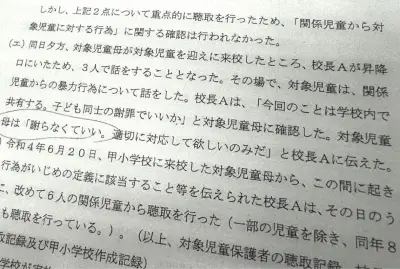 しかし、上記２点について重点的に聴取を行ったため、「関係児童から対
象児童に対する行為」に関する確認は行われなかった。
(エ) 同日夕方、対象児童母が対象児童を迎えに来校したところ、校長Ａが昇降
口にいたため、３人で話をすることとなった。その場で、対象児童は、関係
児童からの暴力行為について話をした。校長Ａは、「今回のことは学校内で
共有する。子ども同士の謝罪でいいか」と対象児童母に確認した。対象児童
母は「謝らなくていい。適切に対応して欲しいのみだ」と校長Ａに伝えた。
令和４年６月２０日、甲小学校に来校した対象児童母から、この間に起き
行為がいじめの定義に該当すること等を伝えられた校長Ａは、その日のう
に、改めて６人の関係児童から聴取を行った（一部の児童を除き、同年８
も聴取を行っている。）。（以上、対象児童保護者の聴取記録、
取記録及び甲小学校作成記録）